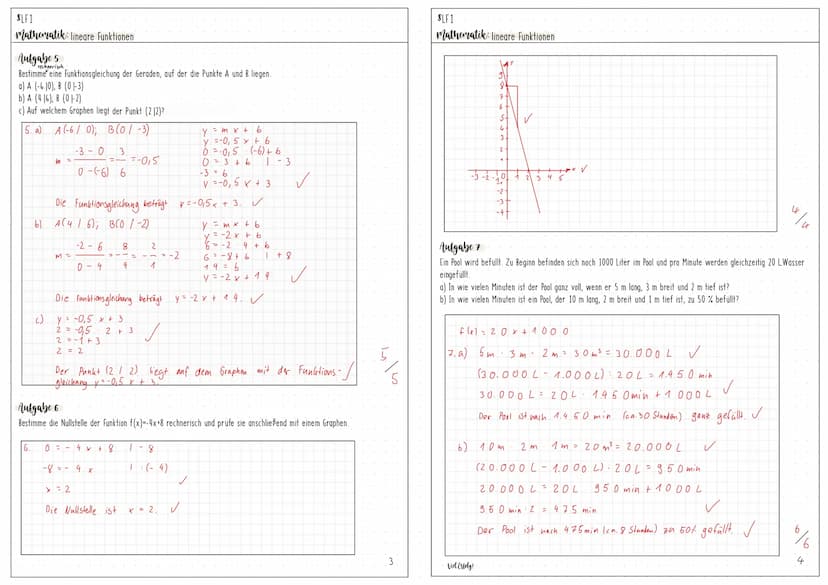 8LF1
Mathematik: lineare Funktionen
Aufgabe 5
rechnerisch
Bestimme eine Funktionsgleichung der Geraden, auf der die Punkte A und B liegen.
a) A (-6|0), B (0|-3)
b) A (4|6), B (0|-2)
c) Auf welchem Graphen liegt der Punkt (2|2)?
5. a) A(-6 / 0); B(0 / -3)
m = -3 - 0 / 0 - (-6) = - 3 / 6 = -0,5
y = m x + b
y = -0,5 x + b
0 = -0,5 (-6) + b
0 = 3 + b | - 3
-3 = b
y = -0,5 x + 3
Die Funktionsgleichung beträgt y = -0,5x + 3.
b) A(4 / 6); B(0 / -2)
m = -2 - 6 / 0 - 4 = - 8 / 4 = - 2 / 1 = -2
y = m x + b
y = -2 x + b
6 = -2 4 + b
6 = -8 + b | + 8
14 = b
y = -2 x + 14
Die Funktionsgleichung beträgt y = -2 x + 14.
c) y = -0,5 x + 3
2 = -0,5 2 + 3
2 = -1 + 3
2 = 2
Der Punkt (2 / 2) liegt auf dem Graphen mit der Funktions-
gleichung y = -0,5 x + 3.
5/5
Aufgabe 6
Bestimme die Nullstelle der Funktion f(x)=-4x+8 rechnerisch und prüfe sie anschließend mit einem Graphen.
6. 0 = - 4 x + 8 | - 8
-8 = - 4 x | : (- 4)
x = 2
Die Nullstelle ist x = 2.
3
8LF1
Mathematik: lineare Funktionen
y
9
8
7
6
5
4
3
2
1
-3 -2 -1 0 1 2 3 4 5 x
-1
-2
-3
-4
4/4
Aufgabe 7
Ein Pool wird befüllt. Zu Beginn befinden sich noch 1000 Liter im Pool und pro Minute werden gleichzeitig 20 L Wasser
eingefüllt.
a) In wie vielen Minuten ist der Pool ganz voll, wenn er 5 m lang, 3 m breit und 2 m tief ist?
b) In wie vielen Minuten ist ein Pool, der 10 m lang, 2 m breit und 1 m tief ist, zu 50 % befüllt?
f(x) = 20 x + 1000
7. a) 5m · 3m · 2m = 30m³ = 30.000 L
(30.000 L - 1.000 L) : 20 L = 1.450 min
30.000 L = 20 L · 1450 min + 1000 L
Der Pool ist nach 1.450 min (ca. 30 Stunden) ganz gefüllt.
b) 10m · 2m 1m = 20m³ = 20.000 L
(20.000 L - 1.000 L) : 20 L = 950 min
20.000 L = 20 L 950 min + 1000 L
950 min : 2 = 475 min
Der Pool ist nach 475 min (ca. 8 Stunden) zu 50% gefüllt.
6/6
Viel Erfolg!
4